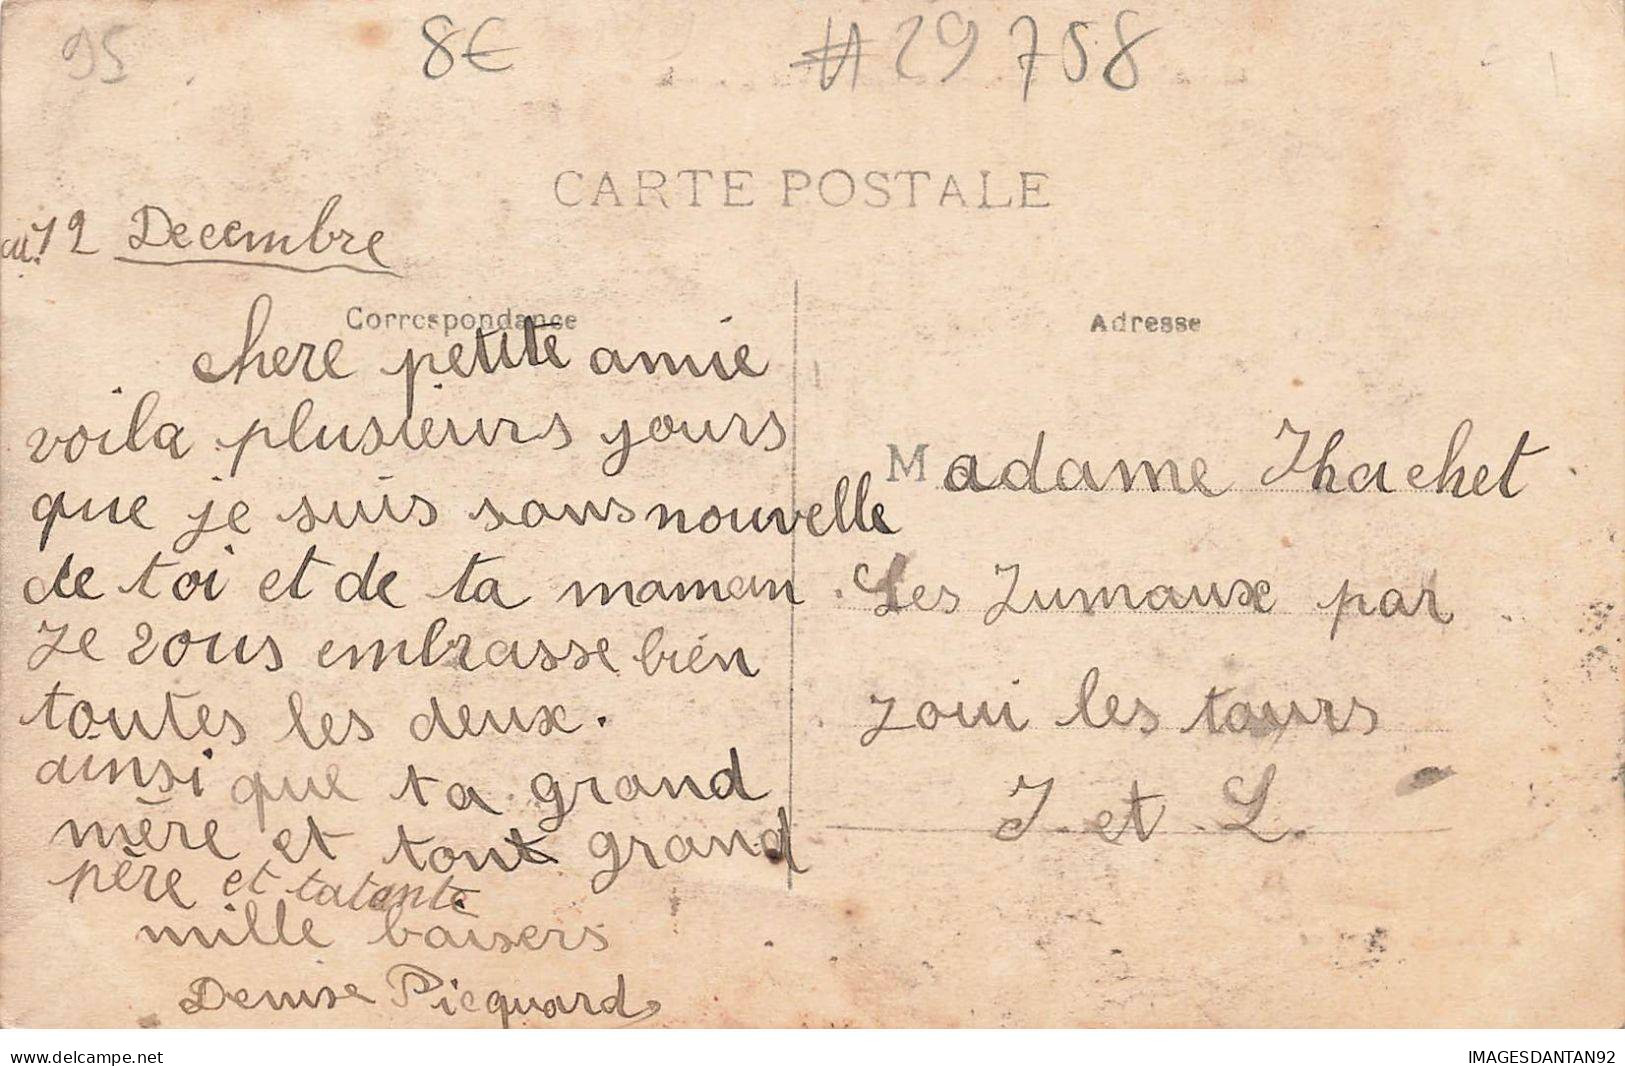 95
8€
#29758
CARTE POSTALE
12 Decembre
Correspondance
chere petite amie
voila plusieurs yours
que je suis sans nouvelle
de toi et de ta maman
Je vous embrasse bien
toutes les deux.
ainsi que ta grand
mère et tout grand
père et tatante
mille baisers
Denise Picquard
Adresse
Madame Thachet
Les Jumaux par
joui les tours
I. et. L.
delcampe.net
IMAGESDANTAN92